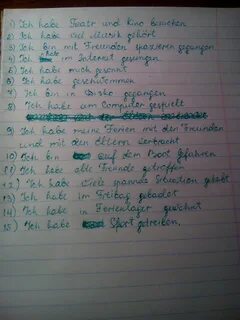 1) Ich habe Teatr und Kino besuchen
2) Ich habe viel Musik gehört
3) Ich bin mit Freunden spazieren gegangen
4) Ich habe im Internet gesungen
5) Ich habe mich gesonnt
6) Ich habe geschwommen
7) Ich bin in Disko gegangen
8) Ich habe am Computer gespielt
9) Ich habe meine Ferien mit den Freunden
und mit den Eltern verbracht
10) Ich bin auf dem Boot gefahren
11) Ich habe alte Freunde getroffen
12) Ich habe viele spannde Situation gehabt
13) Ich habe im Freibad gebadet
14) Ich habe in Ferienlager gewohnt
15) Ich habe Sport getreiben.